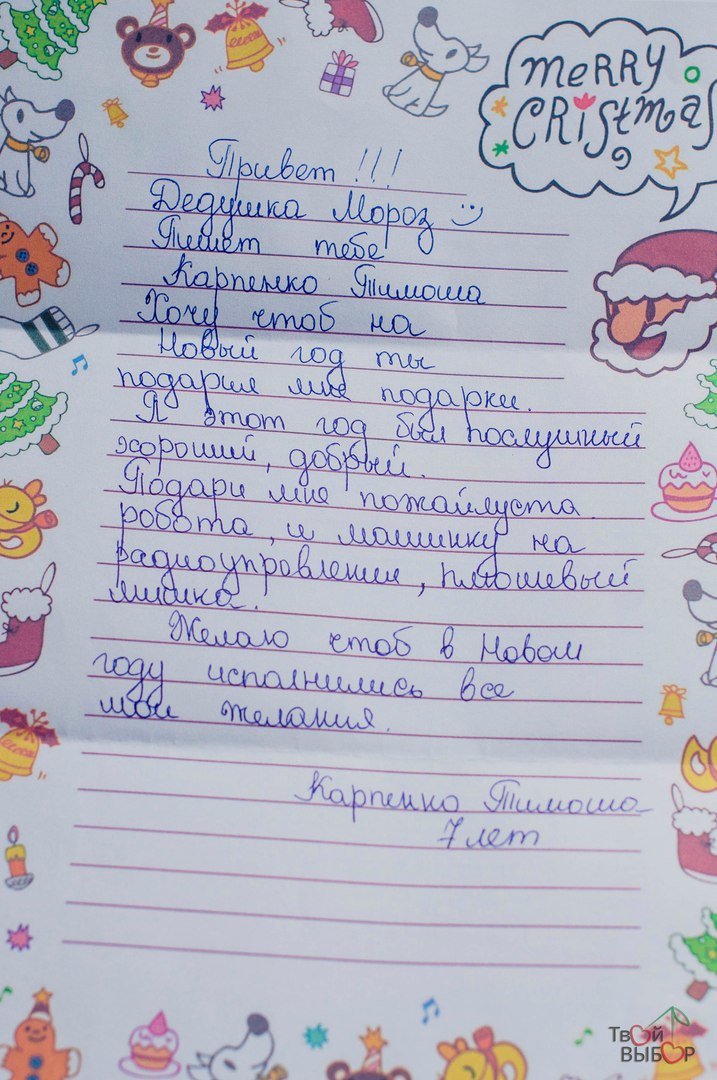 MERRY
CRISTMAS
Привет !!!
Дедушка Мороз
Пишет тебе
Карпенко Тимоша
Хочу чтоб на
Новый год ты
подарил мне подарки.
Я этот год был послушный
хороший, добрый.
Подари мне пожайлуста
робота, и машинку на
радиоупровлении, плюшевый
мишка.
Желаю чтоб в Новом
году исполнились все
мои желания.
Карпенко Тимоша
7 лет
Твой
ВЫБОР